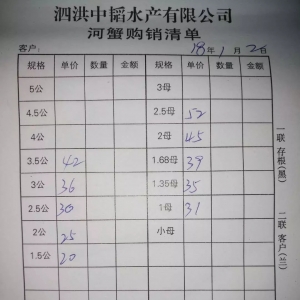 泗洪中韬水产有限公司
河蟹购销清单
客户： 18年1月2日
规格 单价 数量 金额 规格 单价 数量 金额
5公 3母
4.5公 2.5母 52
4公 2母 45
3.5公 42 1.68母 39
3公 36 1.35母 35
2.5公 30 1母 31
2公 25 小母
1.5公 20
一联 存根(黑)
二联 客户(兰)